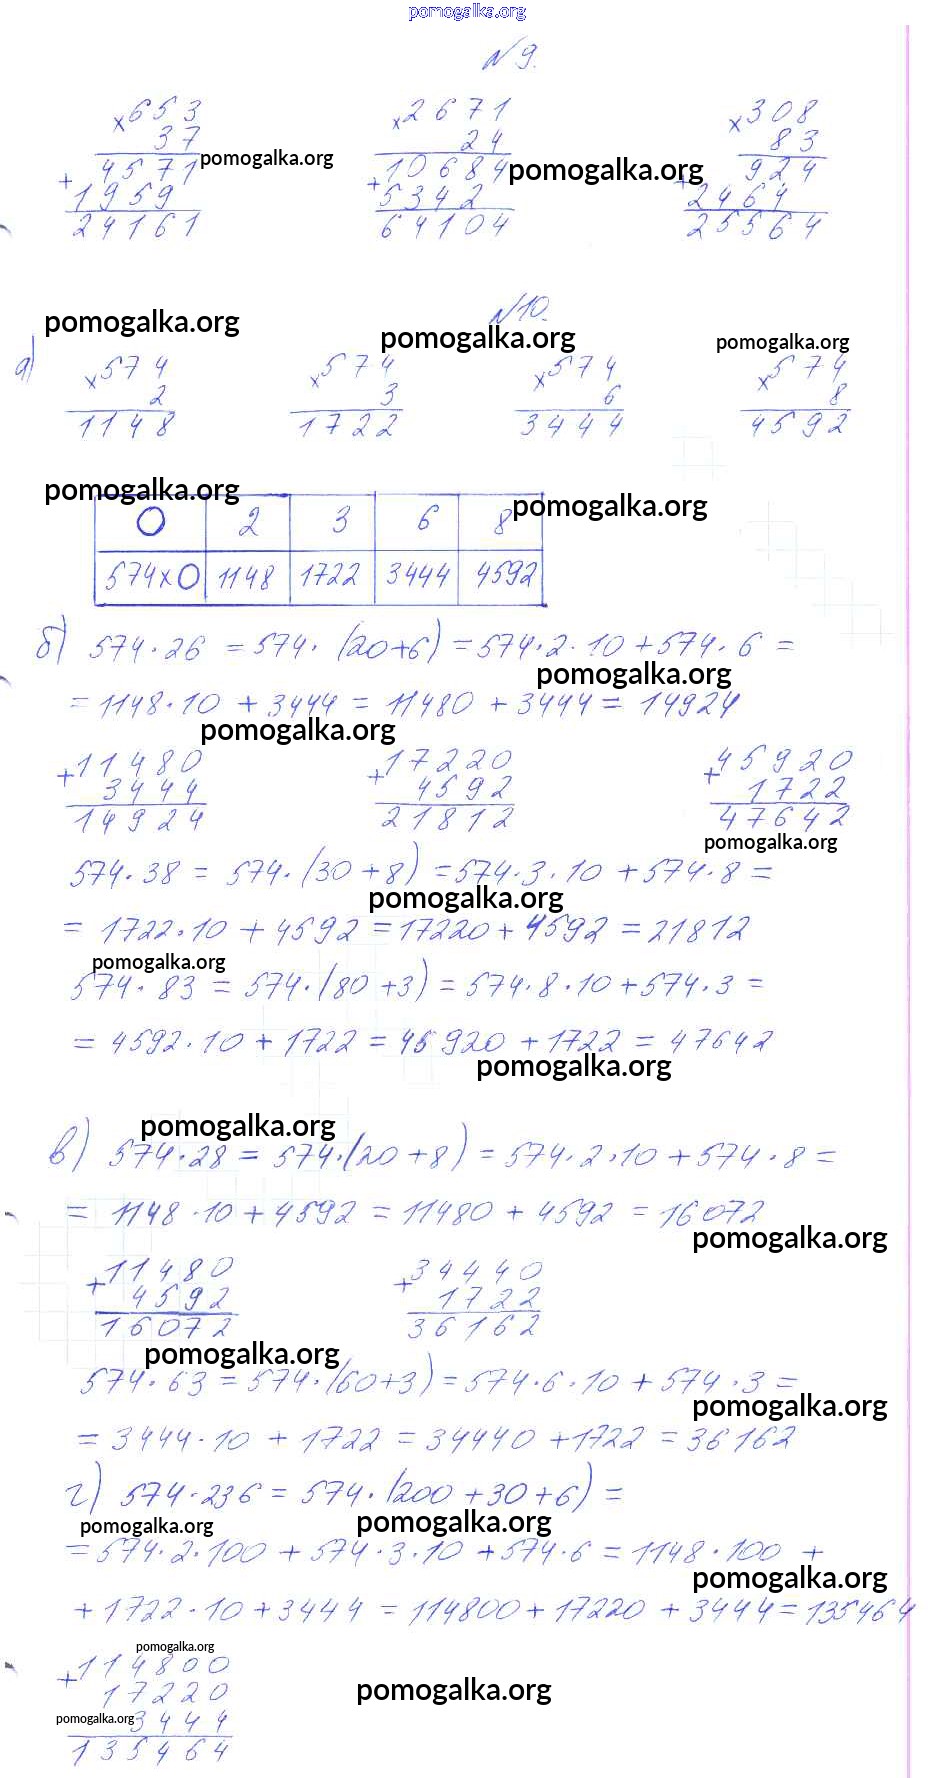 pomogalka.org
№9.
×653 ×2671 ×308
37 24 83
4571 pomogalka.org 10684 pomogalka.org 924
+1959 +5342 +2464
24161 64104 25564
№10.
pomogalka.org pomogalka.org pomogalka.org
а) ×574 ×574 ×574 ×574
2 3 6 8
1148 1722 3444 4592
pomogalka.org pomogalka.org
O 2 3 6 8
574×O 1148 1722 3444 4592
б) 574·26 = 574·(20+6) = 574·2·10+574·6 =
pomogalka.org
= 1148·10 + 3444 = 11480 + 3444 = 14924
pomogalka.org
+11480 +17220 +45920
3444 4592 1722
14924 21812 47642
pomogalka.org
574·38 = 574·(30+8) = 574·3·10+574·8 =
pomogalka.org
= 1722·10 + 4592 = 17220+4592 = 21812
pomogalka.org
574·83 = 574·(80+3) = 574·8·10+574·3 =
= 4592·10 + 1722 = 45920 + 1722 = 47642
pomogalka.org
pomogalka.org
в) 574·28 = 574·(20+8) = 574·2·10+574·8 =
= 1148·10+4592 = 11480 + 4592 = 16072
pomogalka.org
+11480 +34440
4592 1722
16072 36162
pomogalka.org
574·63 = 574·(60+3) = 574·6·10 + 574·3 =
pomogalka.org
= 3444·10 + 1722 = 34440 +1722 = 36162
г) 574·236 = 574·(200+30+6) =
pomogalka.org pomogalka.org
= 574·2·100 + 574·3·10 + 574·6 = 1148·100 +
pomogalka.org
+ 1722·10 + 3444 = 114800+17220 + 3444 = 135464
pomogalka.org
+114800
17220 pomogalka.org
pomogalka.org 3444
135464